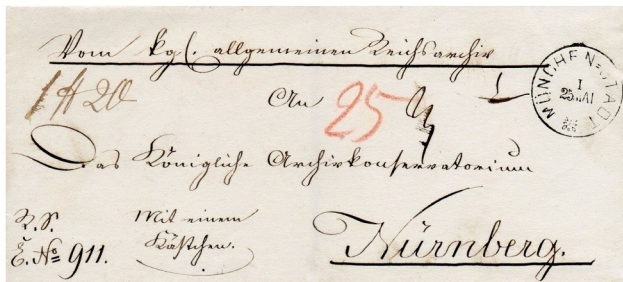 Vom kgl. allgemeinen Reichsarchiv
MÜNCHEN-STADT
I
25 MAI
1 ℔ 20
An
25
Das Königliche Archivkonservatorium
R. S.
E. No 911.
Mit einem
Kästchen.
Nürnberg.